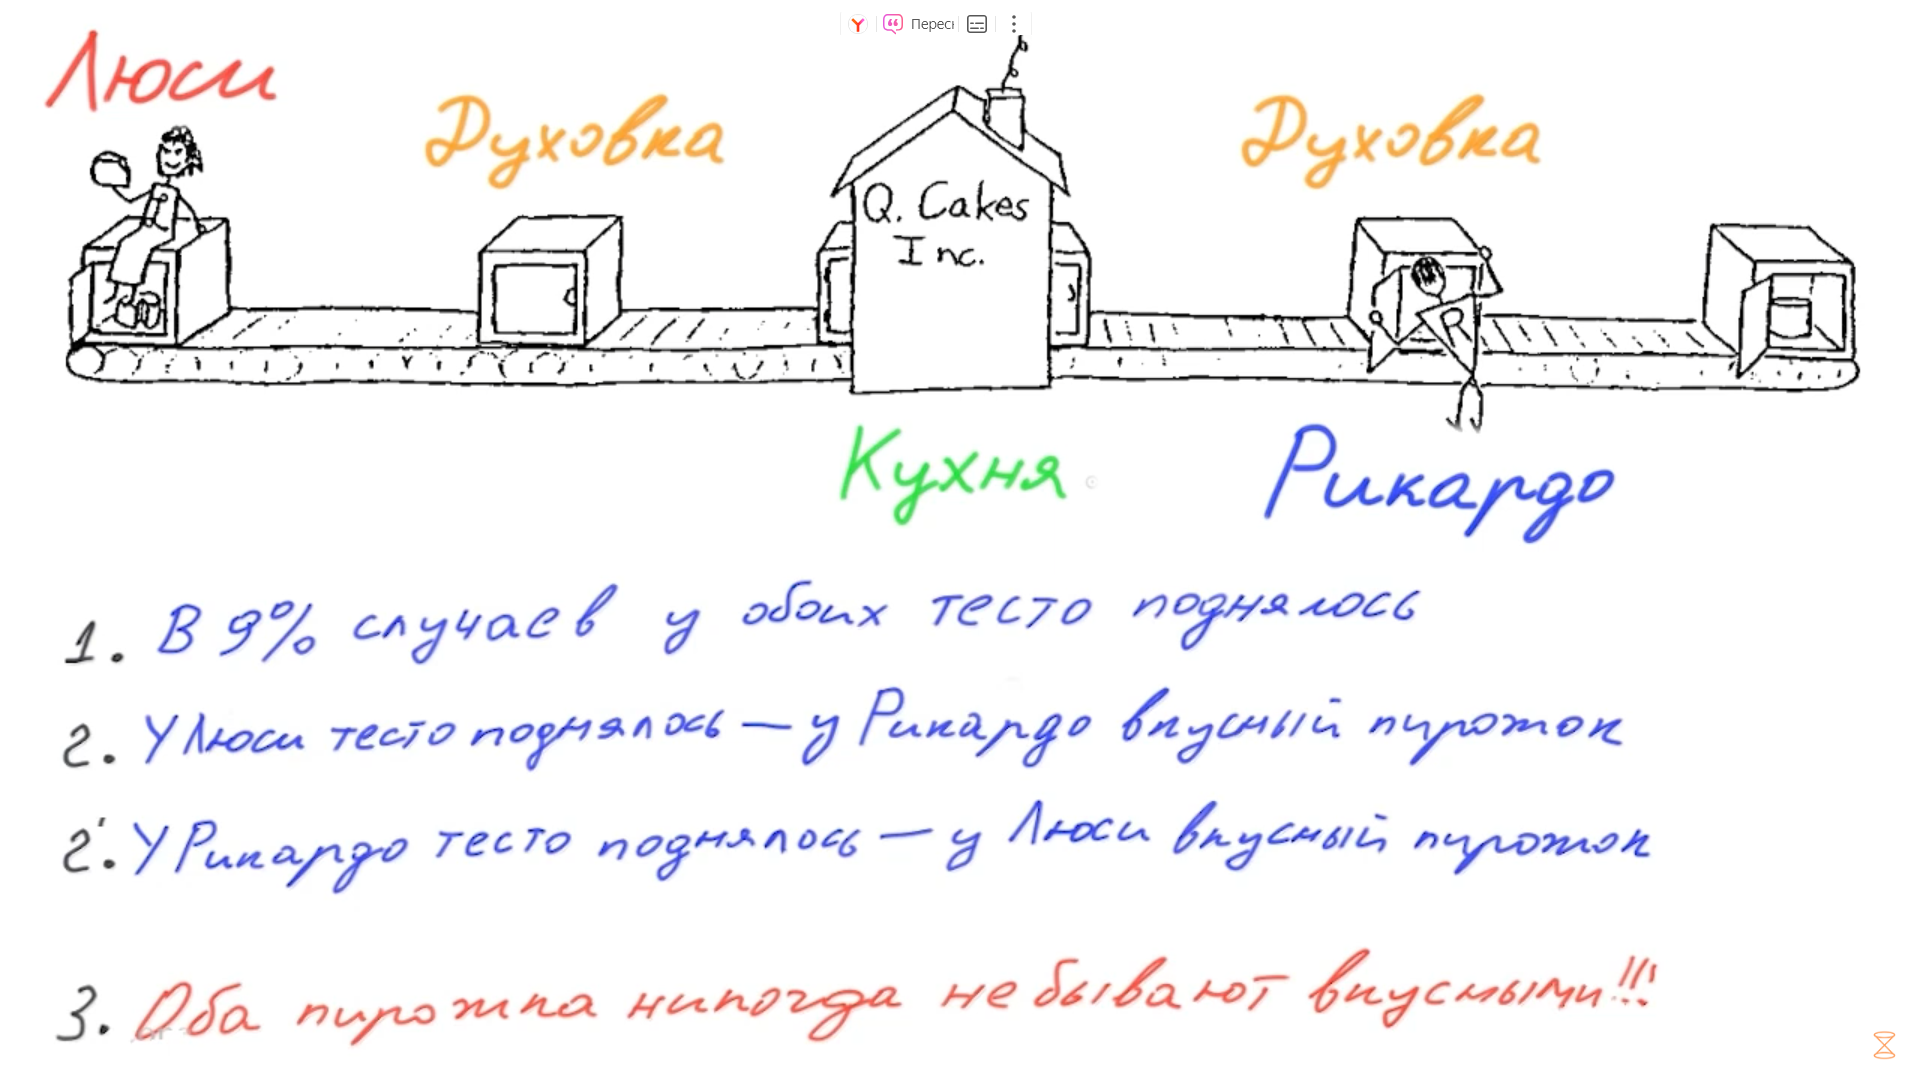 Пересн
Люси
Духовка
Духовка
Q. Cakes
Inc.
R
Кухня
Рикардо
1. В 9% случаев у обоих тесто поднялось
2. У Люси тесто поднялось — у Рикардо вкусный пирожок
2'. У Рикардо тесто поднялось — у Люси вкусный пирожок
3. Оба пирожка никогда не бывают вкусными!!!